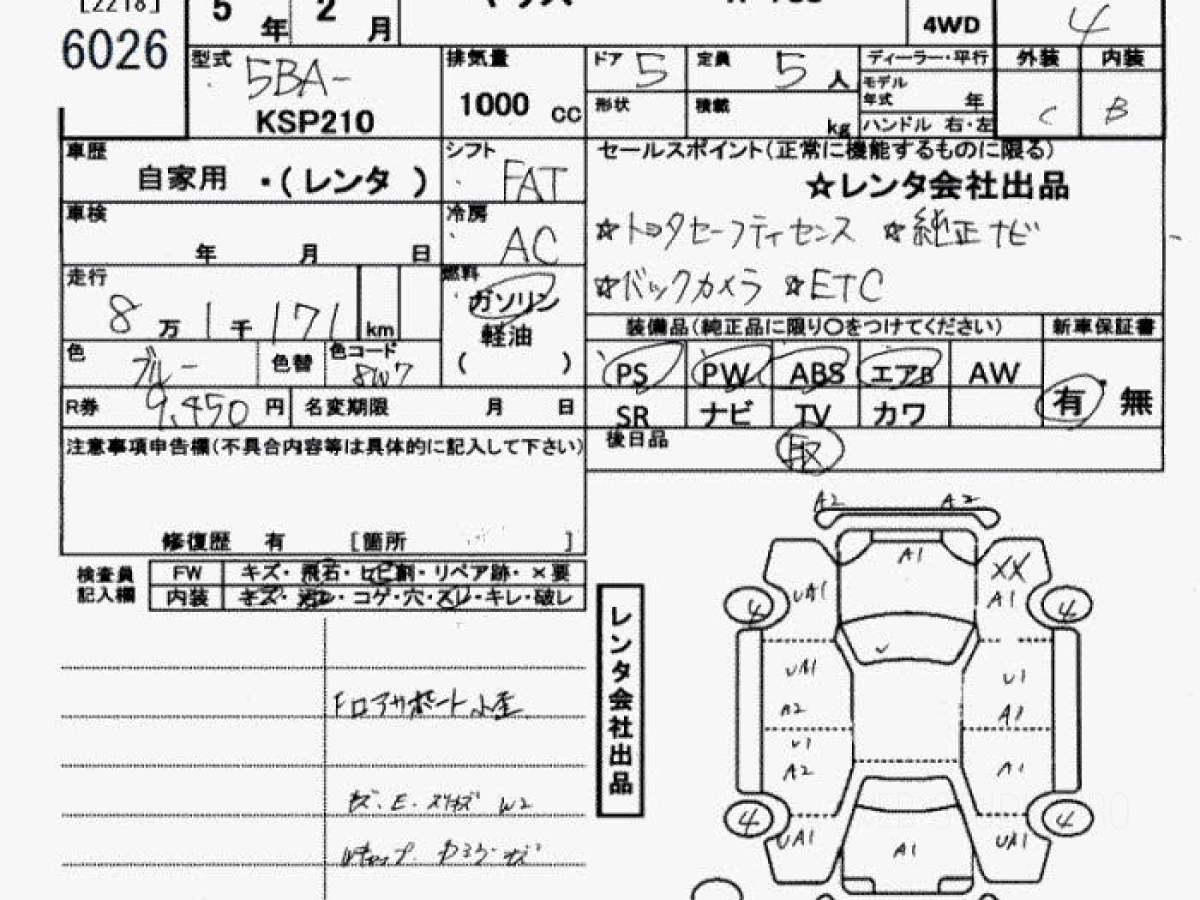 [2218]
6026
5 年 2 月
4WD
4
型式 5BA-
KSP210
排気量
1000 cc
ドア 5
定員 5 人
形状
積載 kg
ディーラー・平行
モデル年式 年
ハンドル 右・左
外装 内装
C B
車歴
自家用 ・(レンタ )
シフト
FAT
セールスポイント(正常に機能するものに限る)
☆レンタ会社出品
☆トヨタセーフティセンス ☆純正ナビ
☆バックカメラ ☆ETC
車検
年 月 日
冷房
AC
走行
8 万 1 千 171 km
燃料
ガソリン
軽油
( )
色 ブルー
色替
色コード
8W7
装備品(純正品に限り〇をつけてください)
新車保証書
PS PW ABS エアB AW
SR ナビ TV カワ
有 無
R券 9,450 円
名変期限 月 日
後日品
取
注意事項申告欄(不具合内容等は具体的に記入して下さい)
修復歴 有 [箇所 ]
検査員
記入欄
FW キズ・飛石・ヒビ割・リペア跡・×要
内装 キズ・汚レ・コゲ・穴・スレ・キレ・破レ
レンタ会社出品
A2 A2
A1
XX
UA1 A1
4 4
U1
A2 A1
U1
A2 A1
4 4
UA1 A1 UA1
FロアサポートI小歪
W2